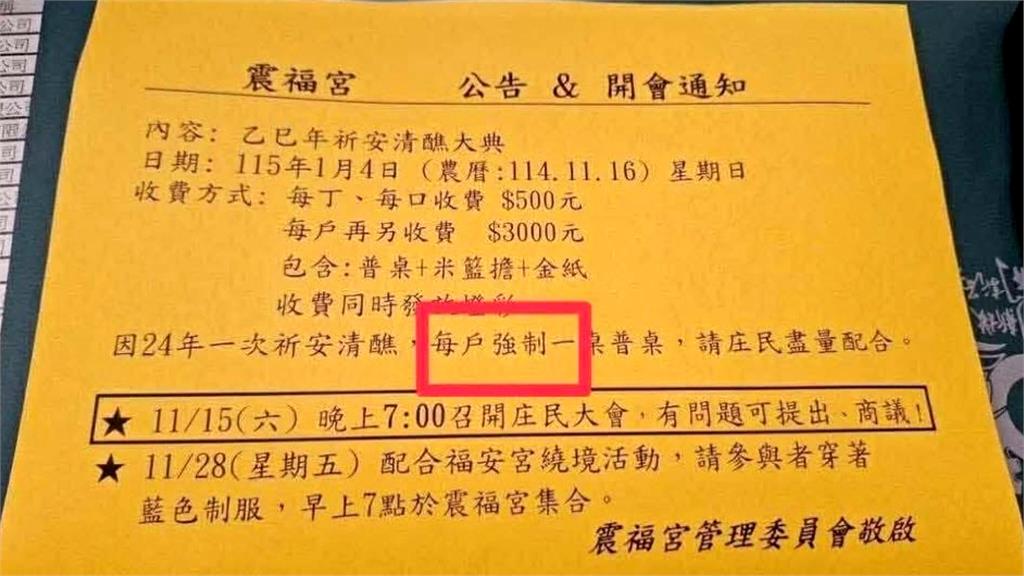 震福宮 公告 & 開會通知
內容: 乙巳年祈安清醮大典
日期: 115年1月4日 (農曆:114.11.16) 星期日
收費方式: 每丁、每口收費 $500元
每戶再另收費 $3000元
包含:普桌+米籃擔+金紙
收費同時發放燈彩
因24年一次祈安清醮,每戶強制一桌普桌,請庄民盡量配合。
★ 11/15(六) 晚上7:00召開庄民大會,有問題可提出、商議!
★ 11/28(星期五) 配合福安宮繞境活動,請參與者穿著
藍色制服,早上7點於震福宮集合。
震福宮管理委員會敬啟
公司
公司
公司
公司
公司